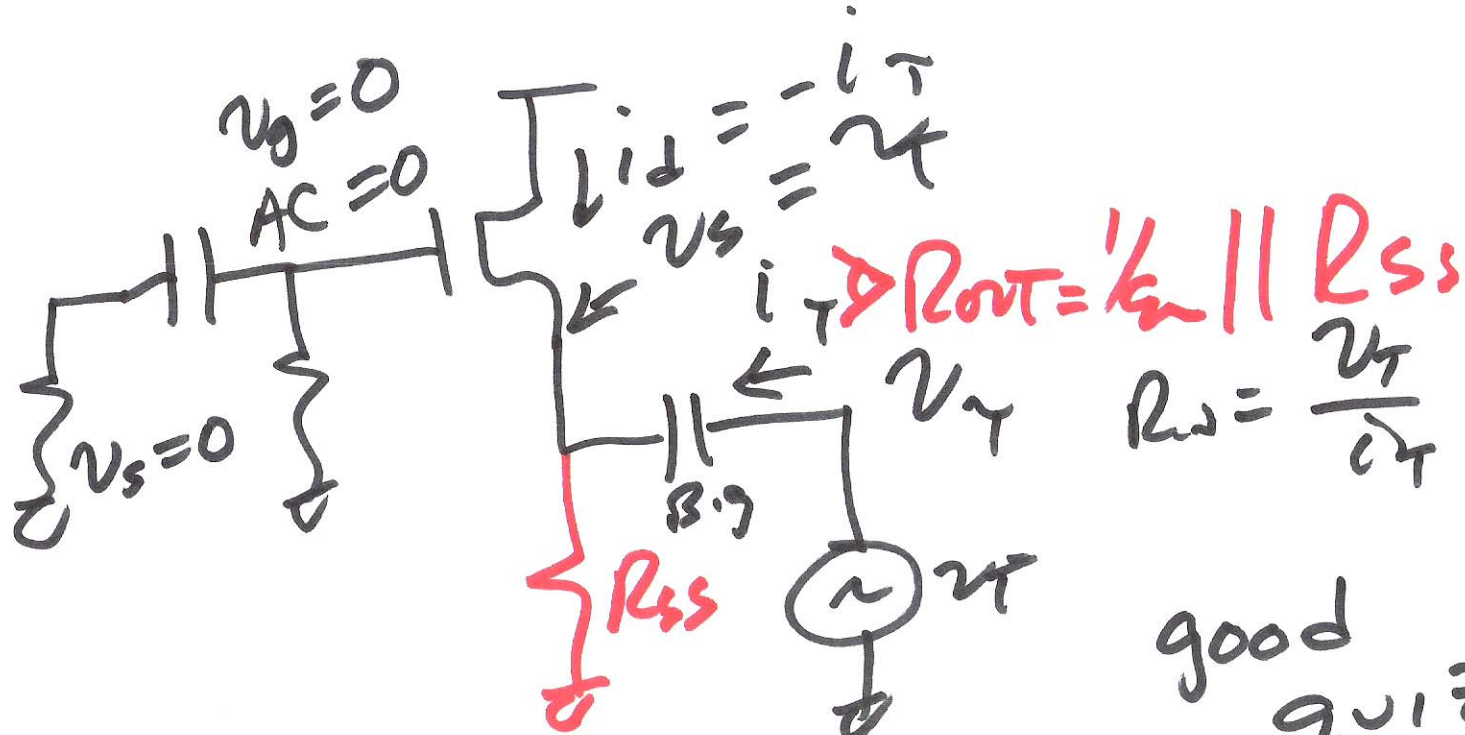 vg = 0
AC = 0
id = -iT
vs = vT
iT
ROUT = 1/gm || RSS
vT
vT / iT
vs = 0
Big
RSS
vT
good